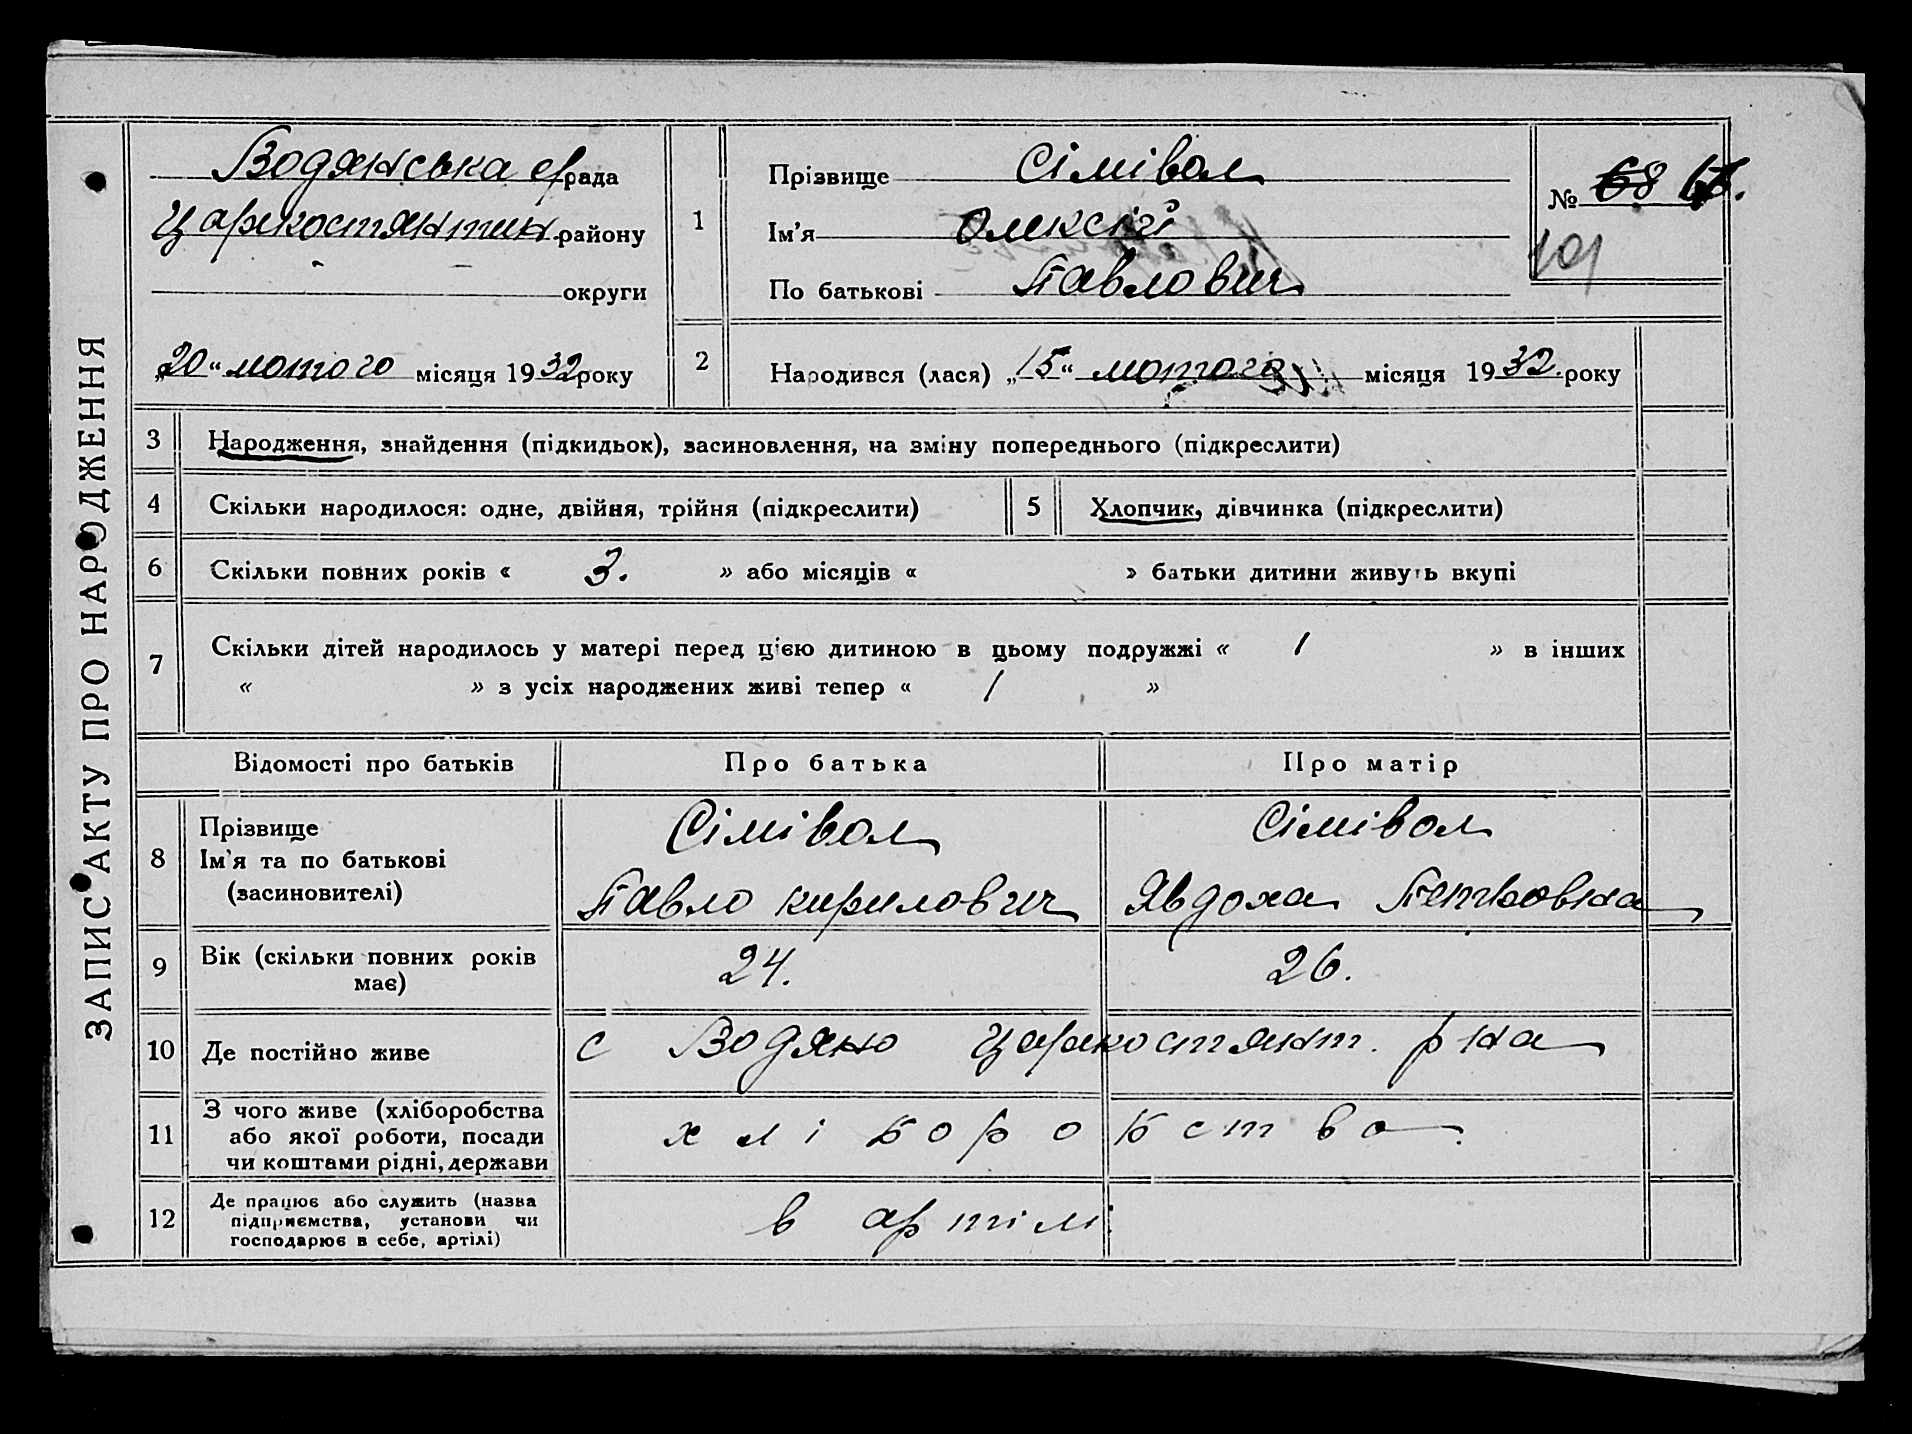 ЗАПИС АКТУ ПРО НАРОДЖЕННЯ
Водянська с/рада
Царкостянтин. району
округи
„20“ лютого місяця 1932 року
1
Прізвище Сімівол
Ім'я Олексій
По батькові Павлович
№ 68
101
2
Народився (лася) „15“ лютого місяця 1932. року
3 Народження, знайдення (підкидьок), засиновлення, на зміну попереднього (підкреслити)
4 Скільки народилося: одне, двійня, трійня (підкреслити)
5 Хлопчик, дівчинка (підкреслити)
6 Скільки повних років « 3. » або місяців « » батьки дитини живуть вкупі
7 Скільки дітей народилось у матері перед цією дитиною в цьому подружжі « 1 » в інших
« » з усіх народжених живі тепер « 1 »
Відомості про батьків Про батька Про матір
8 Прізвище
Ім'я та по батькові
(засиновителі)
Сімівол
Павло Кирилович
Сімівол
Явдоха
9 Вік (скільки повних років
має)
24. 26.
10 Де постійно живе с Водяно Царкостянт. р на
11 З чого живе (хліборобства
або якої роботи, посади
чи коштами рідні, держави
хліборобство.
12 Де працює або служить (назва
підприємства, установи чи
господарює в себе, артілі)
в артілі